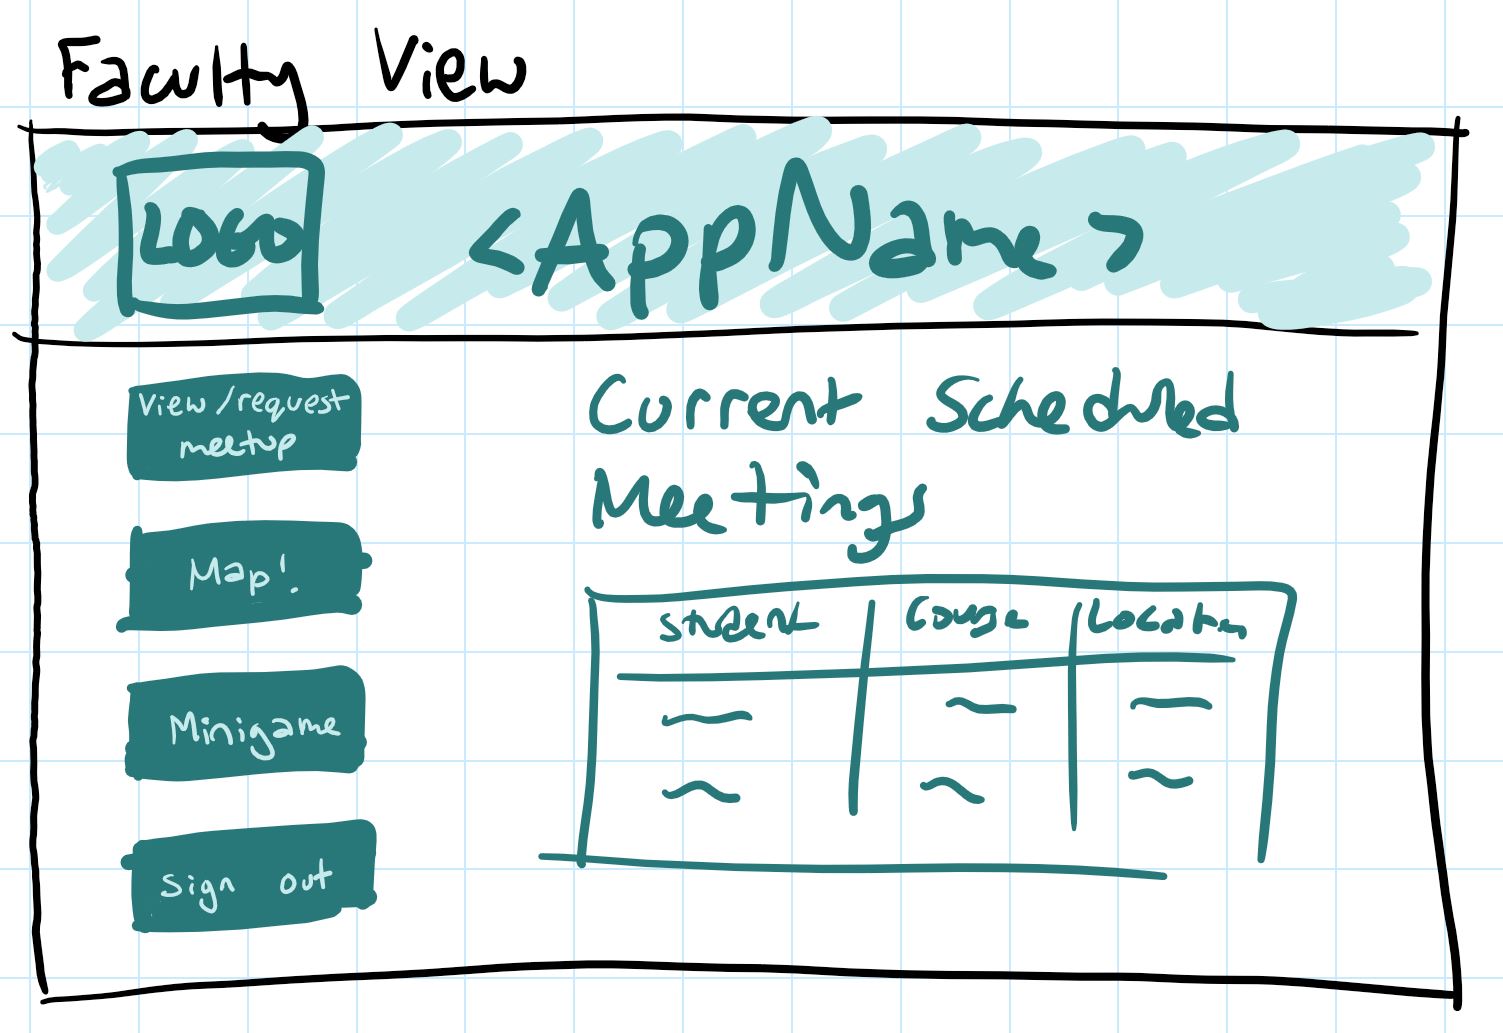 Faculty View
LOGO
<AppName>
View/request
meetup
Map!
Minigame
Sign out
Current Scheduled
Meetings
Student Course Location